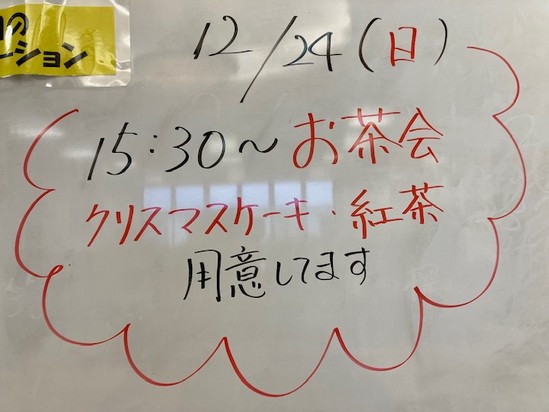 の
ーション
12/24(日)
15:30〜お茶会
クリスマスケーキ・紅茶
用意してます